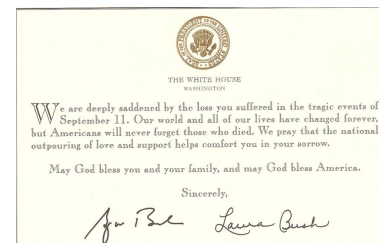 THE WHITE HOUSE
WASHINGTON
We are deeply saddened by the loss you suffered in the tragic events of
September 11. Our world and all of our lives have changed forever,
but Americans will never forget those who died. We pray that the national
outpouring of love and support helps comfort you in your sorrow.
May God bless you and your family, and may God bless America.
Sincerely,
Laura Bush